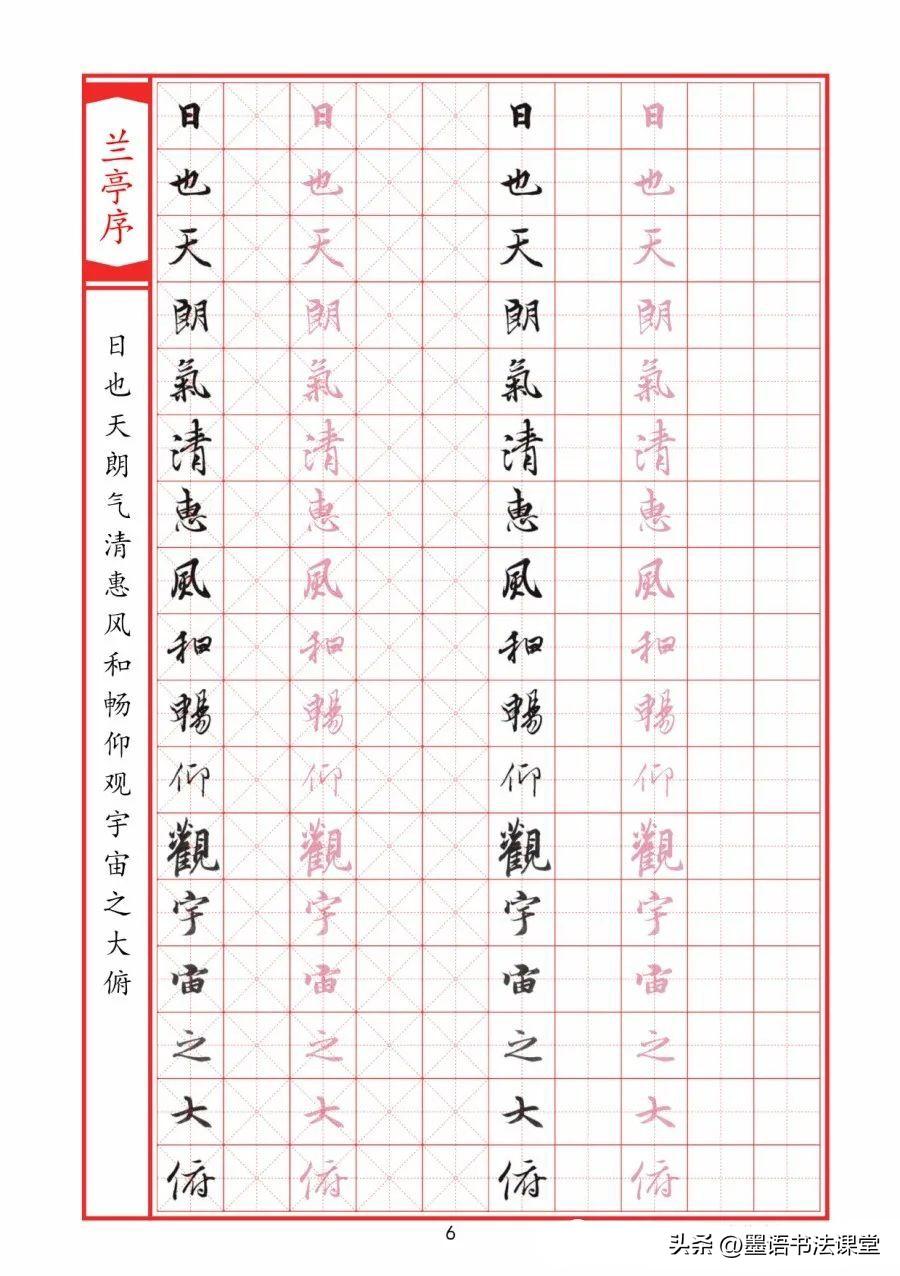 兰亭序
日也天朗气清惠风和畅仰观宇宙之大俯
日也天朗氣清惠風和暢仰觀宇宙之大俯
日也天朗氣清惠風和暢仰觀宇宙之大俯
日也天朗氣清惠風和暢仰觀宇宙之大俯
日也天朗氣清惠風和暢仰觀宇宙之大俯
6
头条 @墨语书法课堂